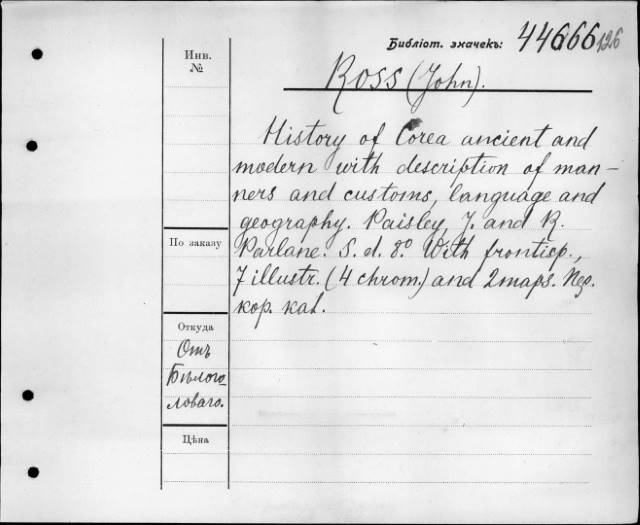 Библіот. значекъ: 44666
Инв.
№
Ross (John).
History of Corea ancient and
modern with description of man-
ners and customs, language and
geography. Paisley, J. and R.
Parlane. S. d. 8º. With frontisp.,
7 illustr. (4 chrom.) and 2 maps.
кор. кат.
По заказу
Откуда
Отъ
Бѣлого
ловаго.
Цѣна